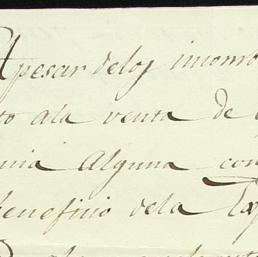 Apesar delos incomo
to ala venta de
nia Alguna con
beneficio dela Exp